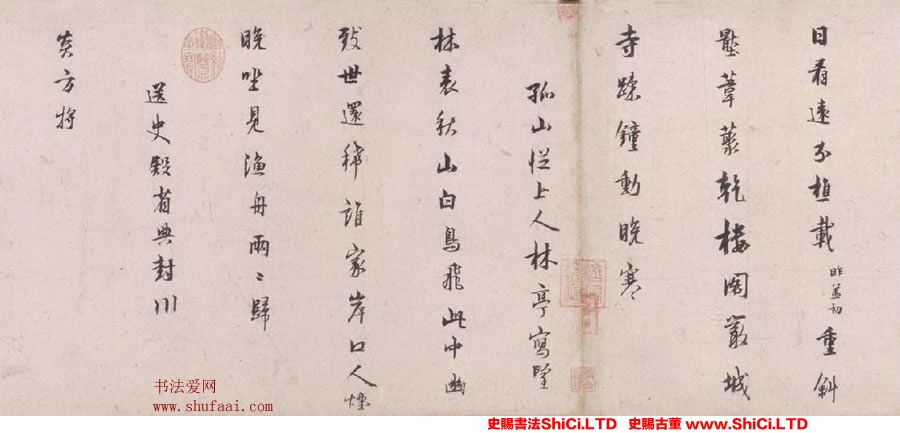 日看遠分樵載昨盖切重斜
壓葦藂乾樓閣嚴城
寺踈鐘動晚寒
孤山從上人林亭寫望
林表秋山白鳥飛此中幽
致世還稀誰家岸口人煙
晚坐見漁舟兩〻歸
送史殿省典封川
炎方將
书法爱网
www.shufaai.com
史賜書法ShiCi.LTD 史賜古董 www.ShiCi.LTD